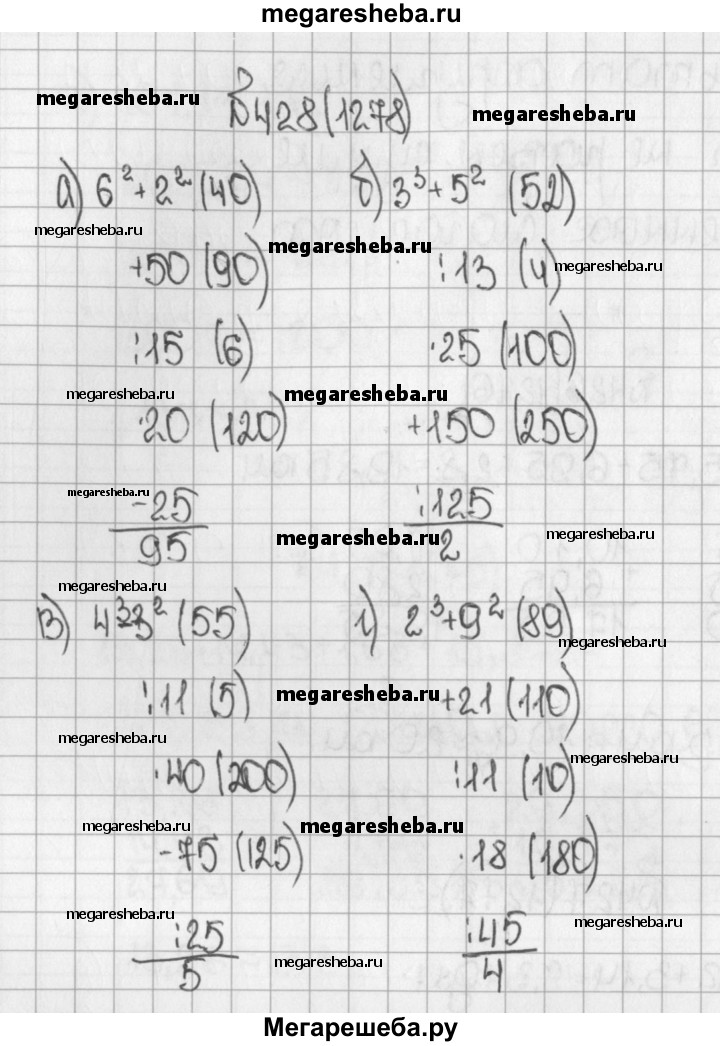 megaresheba.ru
№428(1278)
megaresheba.ru
megaresheba.ru
а) 6²+2² (40) б) 3³+5² (52)
megaresheba.ru
megaresheba.ru
+50 (90) :13 (4)
megaresheba.ru
:15 (6) ·25 (100)
megaresheba.ru
megaresheba.ru
·20 (120) +150 (250)
megaresheba.ru
-25 :125
95 2
megaresheba.ru
megaresheba.ru
megaresheba.ru
в) 4³-3² (55) г) 2³+9² (89)
megaresheba.ru
:11 (5) +21 (110)
megaresheba.ru
megaresheba.ru
·40 (200) :11 (10)
megaresheba.ru
megaresheba.ru
megaresheba.ru
-75 (125) ·18 (180)
megaresheba.ru
megaresheba.ru
:25 :45
5 4
megaresheba.ru
Мегарешеба.ру